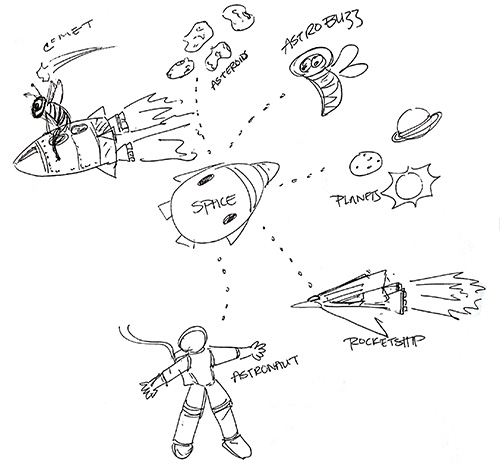 COMET
ASTEROIDS
ASTROBUZZ
SPACE
PLANETS
ROCKETSHIP
ASTRONAUT